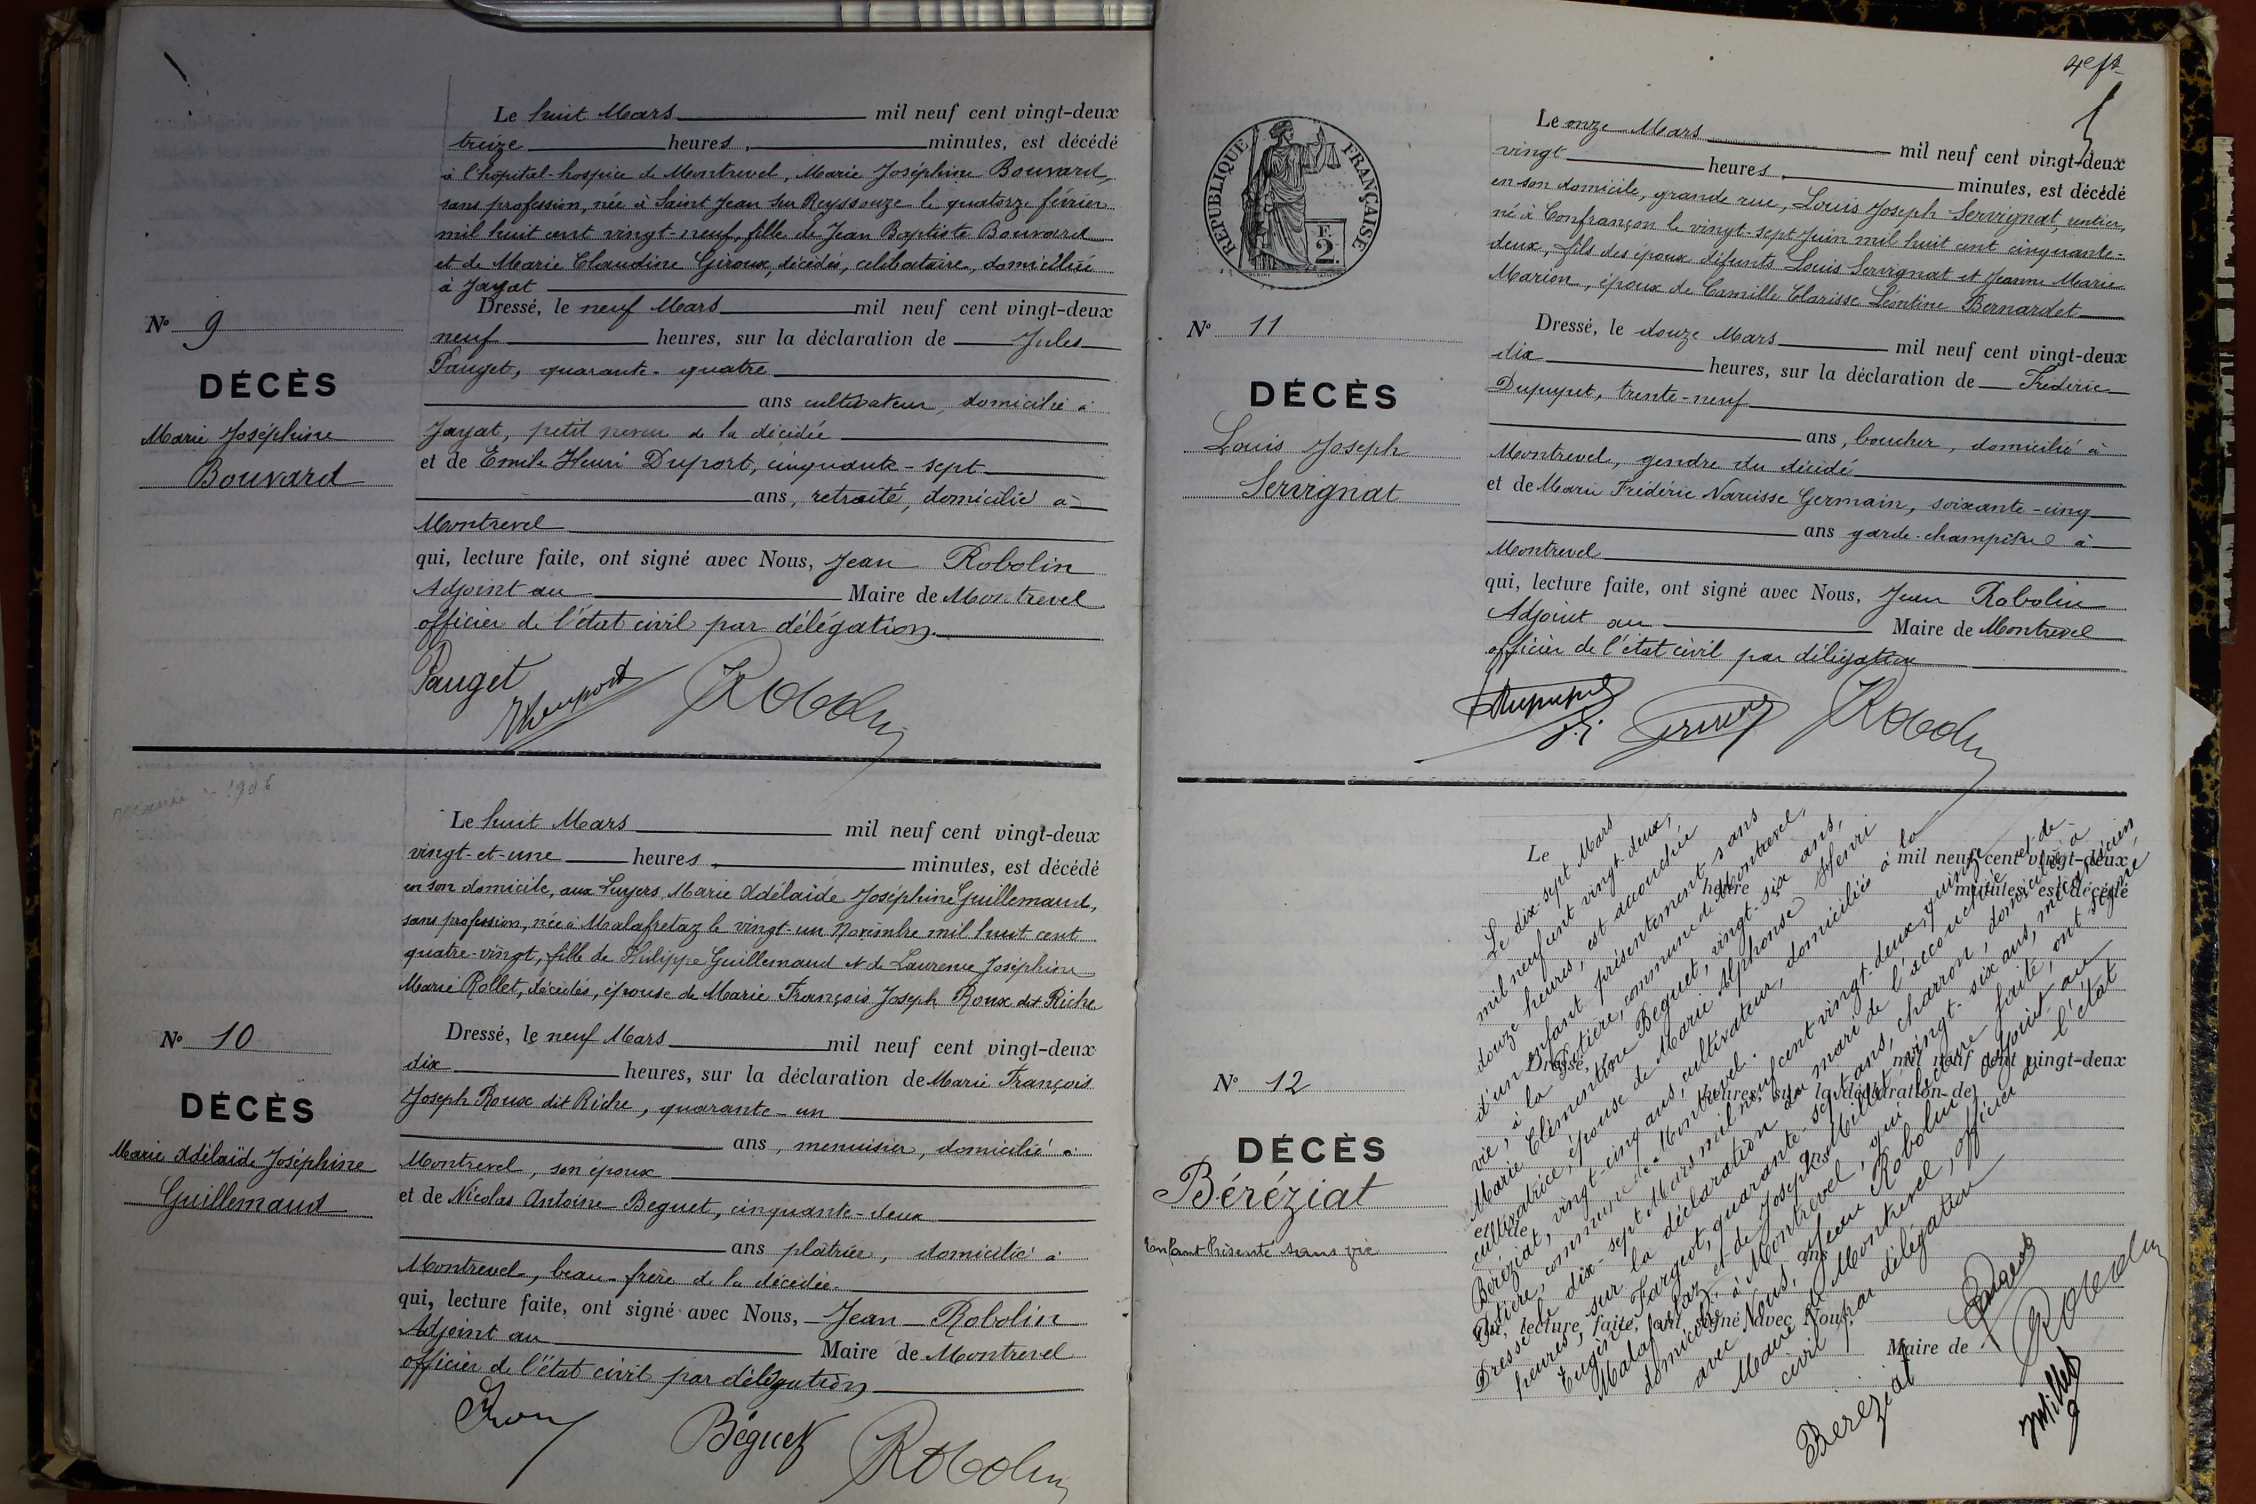 Le huit Mars mil neuf cent vingt-deux
treize heures, minutes, est décédé
à l'hôpital-hospice de Montrevel, Marie Joséphine Bouvard,
sans profession, née à Saint Jean sur Reyssouze le quatorze février
mil huit cent vingt-neuf, fille de Jean Baptiste Bouvard
et de Marie Claudine Giroux, décédés, célibataire, domiciliée
à Jayat
Dressé, le neuf Mars mil neuf cent vingt-deux
neuf heures, sur la déclaration de Jules
Pauget, quarante-quatre
ans cultivateur, domicilié à
Jayat, petit neveu de la décédée
et de Emile Henri Duport, cinquante-sept
ans, retraité, domicilié à
Montrevel
qui, lecture faite, ont signé avec Nous, Jean Robolin
Adjoint au Maire de Montrevel
officier de l'état civil par délégation
Pauget Robolin
No 9
DÉCÈS
Marie Joséphine
Bouvard
1906
Le huit Mars mil neuf cent vingt-deux
vingt-et-une heures, minutes, est décédé
en son domicile, aux Luyers, Marie Adélaïde Joséphine Guillemaud,
sans profession, née à Malafretaz le vingt-un Novembre mil huit cent
quatre-vingt, fille de Philippe Guillemaud et de Laurence Joséphine
Marie Rollet, décédés, épouse de Marie François Joseph Roux dit Riche
Dressé, le neuf Mars mil neuf cent vingt-deux
dix heures, sur la déclaration de Marie François
Joseph Roux dit Riche, quarante-un
ans, menuisier, domicilié à
Montrevel, son époux
et de Nicolas Antoine Beguet, cinquante-deux
ans plâtrier, domicilié à
Montrevel, beau-frère de la décédée
qui, lecture faite, ont signé avec Nous, Jean Robolin
Adjoint au Maire de Montrevel
officier de l'état civil par délégation
Roux Béguet Robolin
No 10
DÉCÈS
Marie Adélaïde Joséphine
Guillemaud
RÉPUBLIQUE FRANÇAISE
F.
2.
Le onze Mars mil neuf cent vingt-deux
vingt heures, minutes, est décédé
en son domicile, grande rue, Louis Joseph Servignat, rentier,
né à Confrançon le vingt-sept Juin mil huit cent cinquante-
deux, fils des époux défunts Louis Servignat et Jeanne Marie
Marion, époux de Camille Clarisse Léontine Bernardet
Dressé, le douze Mars mil neuf cent vingt-deux
dix heures, sur la déclaration de Frédéric
Dupupet, trente-neuf
ans, boucher, domicilié à
Montrevel, gendre du décédé
et de Marie Frédéric Narcisse Germain, soixante-cinq
ans garde-champêtre à
Montrevel
qui, lecture faite, ont signé avec Nous, Jean Robolin
Adjoint au Maire de Montrevel
officier de l'état civil par délégation
Robolin
No 11
DÉCÈS
Louis Joseph
Servignat
Le mil neuf cent vingt-deux,
heure minutes, est décédé
Dressé, mil neuf cent vingt-deux
heures, sur la déclaration de
ans
qui, lecture faite, ont signé avec Nous,
Maire de
Le dix-sept Mars
mil neuf cent vingt-deux,
douze heures, est accouchée
d'un enfant présentement sans
vie, à la Patière, commune de Montrevel,
Marie Clémentine Beguet, vingt-six ans,
cultivatrice, épouse de Marie Alphonse Henri
Béréziat, vingt-cinq ans, cultivateur, domiciliés à la
Patière, commune de Montrevel.
Dressé le dix-sept Mars mil neuf cent vingt-deux, quinze
heures, sur la déclaration du mari de l'accouchée et de
Eugène Fargeot, quarante-sept ans, charron, domicilié à
Malafretaz et de Joseph Millet, vingt-six ans, mécanicien,
domicilié à Montrevel, qui lecture faite, ont signé
avec Nous, Jean Robolin, Adjoint au
Maire de Montrevel, officier de l'état
civil par délégation
Béréziat Robolin Millet
No 12
DÉCÈS
Béréziat
Enfant Présenté sans vie